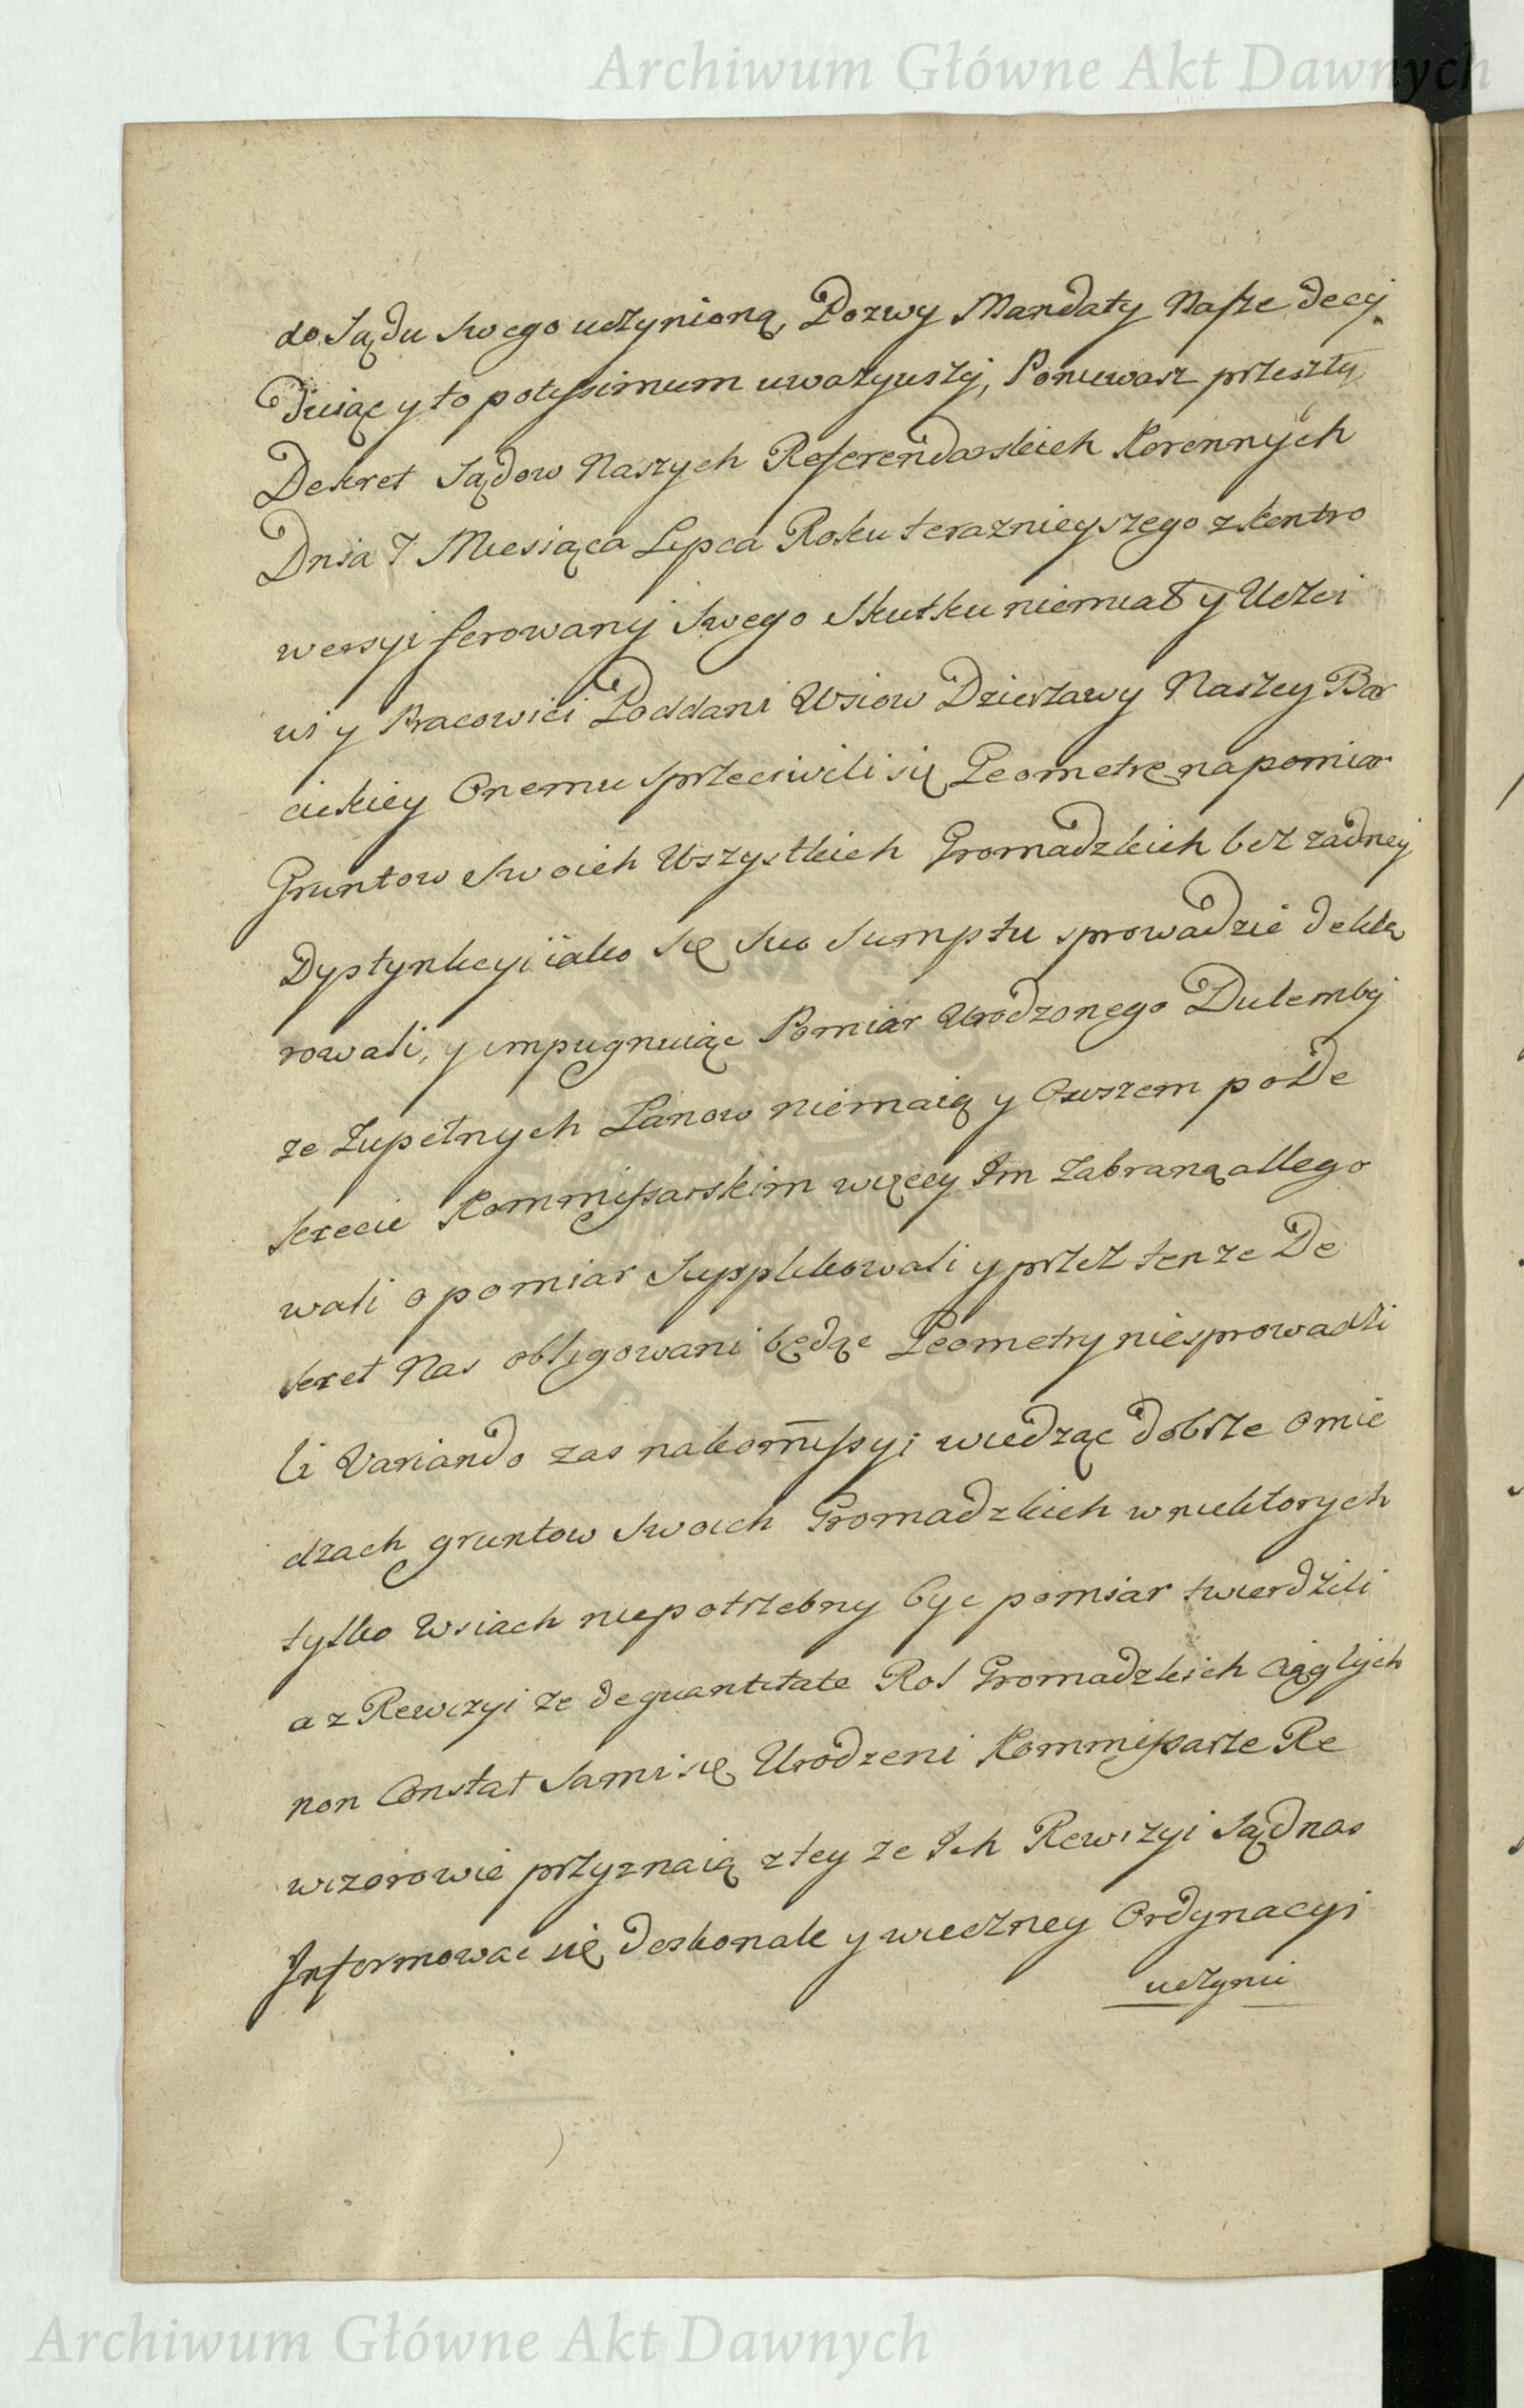 Archiwum Główne Akt Dawnych
do Sądu Swego uczynioną, Pozwy Mandaty Nasze decy
duiąc y to potyssimum uwazywszy, Poniewasz przeszły
Dekret Sądow Naszych Referendarskich Korennych
Dnia 7 Miesiąca Lipca Roku teraznieyszego z kontro
wersyi ferowany Swego Skutku niemiał y Uczci
wi y Pracowici Poddani Wsiow Dzierzawy Naszey Bar
cickiey Onemu sprzeciwili się Geometrę na pomiar
Gruntow Swoich Wszystkich Gromadzkich bez zadney
Dystynkcyi iako się Suo Sumptu sprowadzić dekla
rowali, y impugnuiąc Pomiar Urodzonego Dulemby
ze Zupełnych Łanow niemaią y Owszem po De
krecie Kommissarskim więcey Im Zabraną allego
wali o pomiar Supplikowali y przez tenze De
kret Nas obligowani będąc Geometry niesprowadzi
li Variando zas na kommissyi wiedząc dobrze o mie
dzach gruntow Swoich Gromadzkich w niektorych
tylko Wsiach niepotrzebny byc pomiar twierdzili
a z Rewizyi ze de quantitate Rol Gromadzkich ciągłych
non Constat Sami się Urodzeni Kommissarze Re
wizorowie przyznaią z tey ze Ich Rewizyi Sąd nas
Informowac się doskonale y wieczney Ordynacyi
uczynic
Archiwum Główne Akt Dawnych